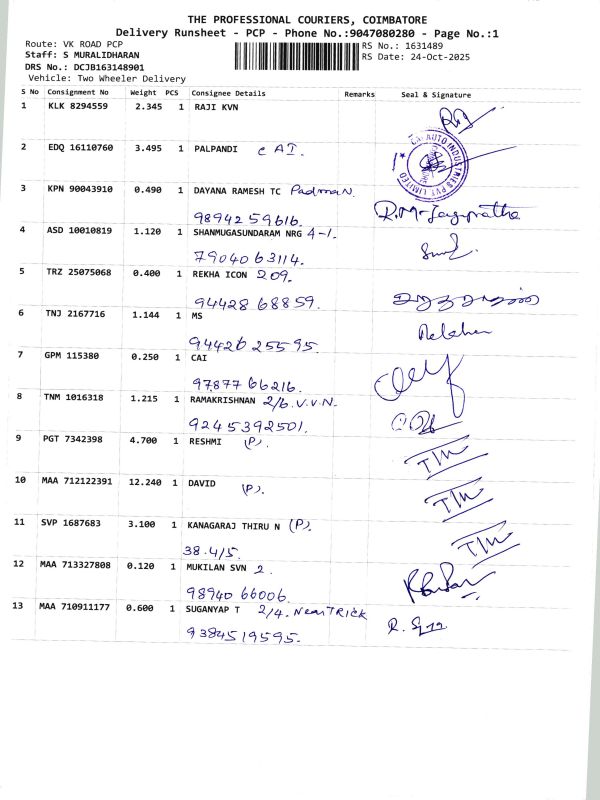 THE PROFESSIONAL COURIERS, COIMBATORE
Delivery Runsheet - PCP - Phone No.:9047080280 - Page No.:1
Route: VK ROAD PCP
RS No.: 1631489
Staff: S MURALIDHARAN
RS Date: 24-Oct-2025
DRS No.: DCJB163148901
Vehicle: Two Wheeler Delivery
S No Consignment No Weight PCS Consignee Details Remarks Seal & Signature
1 KLK 8294559 2.345 1 RAJI KVN
2 EDQ 16110760 3.495 1 PALPANDI C A I.
AUTO INDUSTRIES PVT LIMITED
3 KPN 90043910 0.490 1 DAYANA RAMESH TC PadmaN.
9894259616. R.M. Jayapratha
4 ASD 10010819 1.120 1 SHANMUGASUNDARAM NRG 4-1.
7904063114.
5 TRZ 25075068 0.400 1 REKHA ICON 209.
9442868859.
6 TNJ 2167716 1.144 1 MS
9442625595.
7 GPM 115380 0.250 1 CAI
9787766216.
8 TNM 1016318 1.215 1 RAMAKRISHNAN 2/6.V.V.N.
9245392501.
9 PGT 7342398 4.700 1 RESHMI (P).
10 MAA 712122391 12.240 1 DAVID (P).
11 SVP 1687683 3.100 1 KANAGARAJ THIRU N (P).
38.4/5.
12 MAA 713327808 0.120 1 MUKILAN SVN 2.
9894066006.
13 MAA 710911177 0.600 1 SUGANYAP T 2/4. Near TRICK
9384519595.